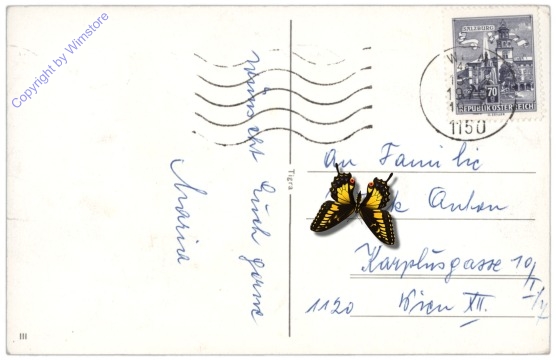 Copyright by Wimstore
SALZBURG
70
REPUBLIK ÖSTERREICH
1150
wünscht Euch gerne
Maria
Tigra
An Familie
Anton
Karplusgasse 10/
1120 Wien XII.
III